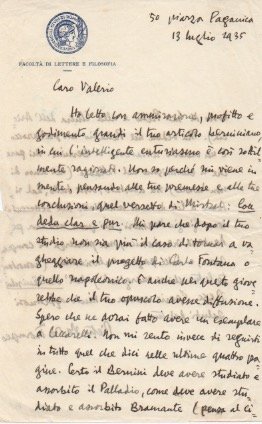 50 piazza Paganica
13 luglio 1935
FACOLTÀ DI LETTERE E FILOSOFIA
Caro Valerio
Ho letto con ammirazione, profitto e
godimento grandi il tuo articolo berniniano
in cui l'intelligente entusiasmo è così sottil=
mente ragionato. Non so perché mi viene in
mente, pensando alle tue premesse e alle tue
conclusioni, quel versetto di Mistral:
clar e pur. Mi pare che dopo il tuo
studio non sia più il caso di tornare a va
gheggiare il progetto di Carlo Fontana o
quello napoleonico. E anche per questo giove=
rebbe che il tuo opuscolo avesse diffusione.
Spero che ne avrai fatto avere un esemplare
a Ceccarelli. Non mi sento invece di seguirti
in tutto quel che dici nelle ultime quattro pa=
gine. Certo il Bernini deve avere studiato e
assorbito il Palladio, come deve avere stu=
diato e assorbito Bramante (pensa al ci